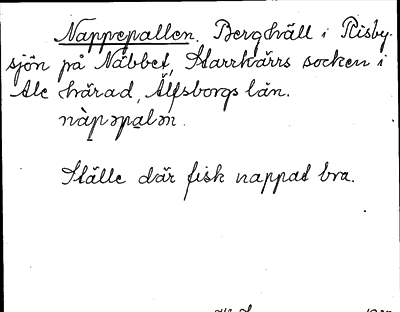 Nappepallen. Berghäll i Risby-
sjön på Näbbet, Starrkärrs socken i
Ale härad, Älfsborgs län.
nàpəpa̱lən.
Ställe där fisk nappat bra.